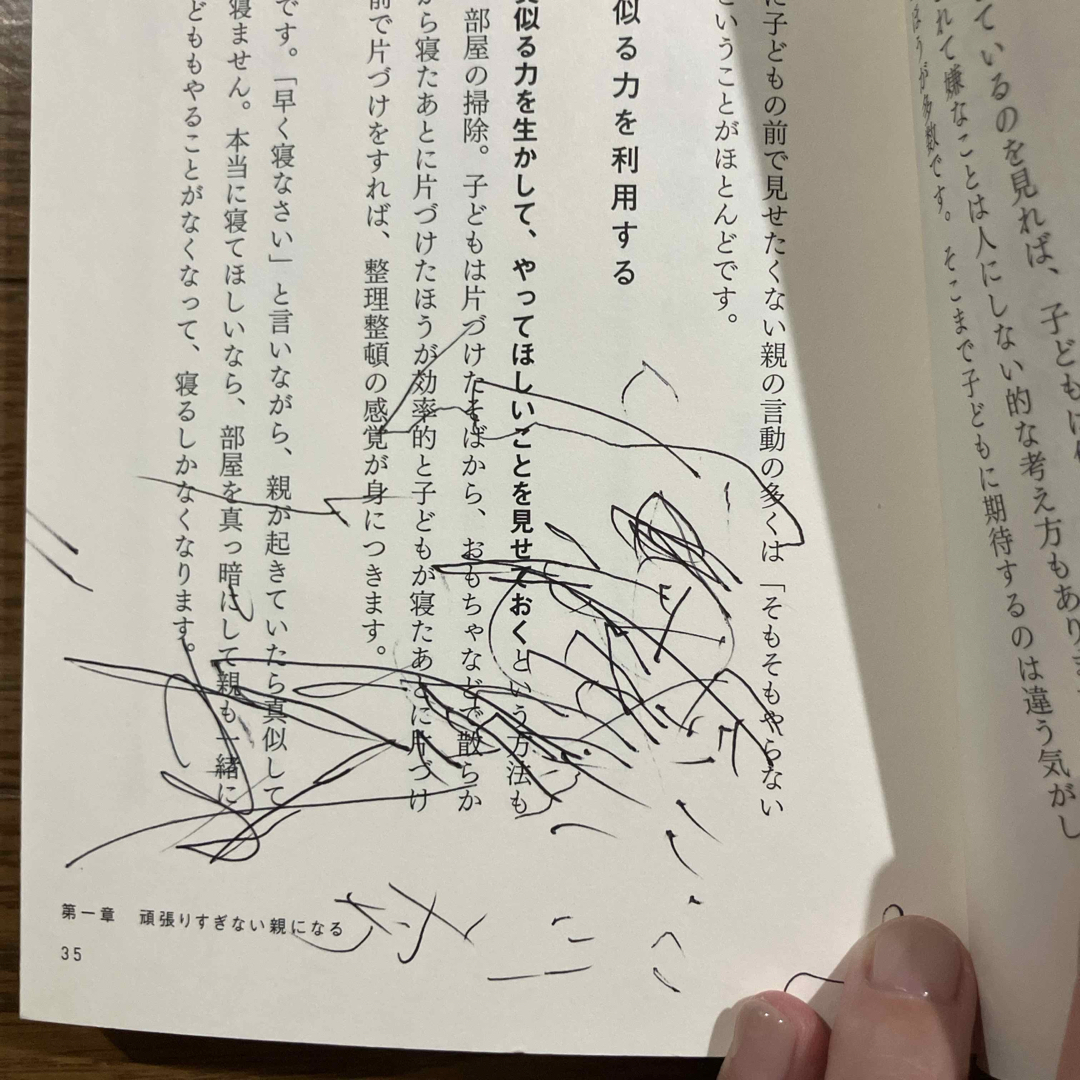 ているのを見れば、子どもに
れて嫌なことは人にしない的な考え方もあります
ほうが多数です。そこまで子どもに期待するのは違う気がし
に子どもの前で見せたくない親の言動の多くは「そもそもやらない
ということがほとんどです。
似る力を利用する
似る力を生かして、やってほしいことを見せておくという方法も
部屋の掃除。子どもは片づけたそばから、おもちゃなどで散らか
から寝たあとに片づけたほうが効率的と子どもが寝たあとに片づけ
前で片づけをすれば、整理整頓の感覚が身につきます。
です。「早く寝なさい」と言いながら、親が起きていたら真似して
寝ません。本当に寝てほしいなら、部屋を真っ暗にして親も一緒に
どももやることがなくなって、寝るしかなくなります。
第一章 頑張りすぎない親になる
35